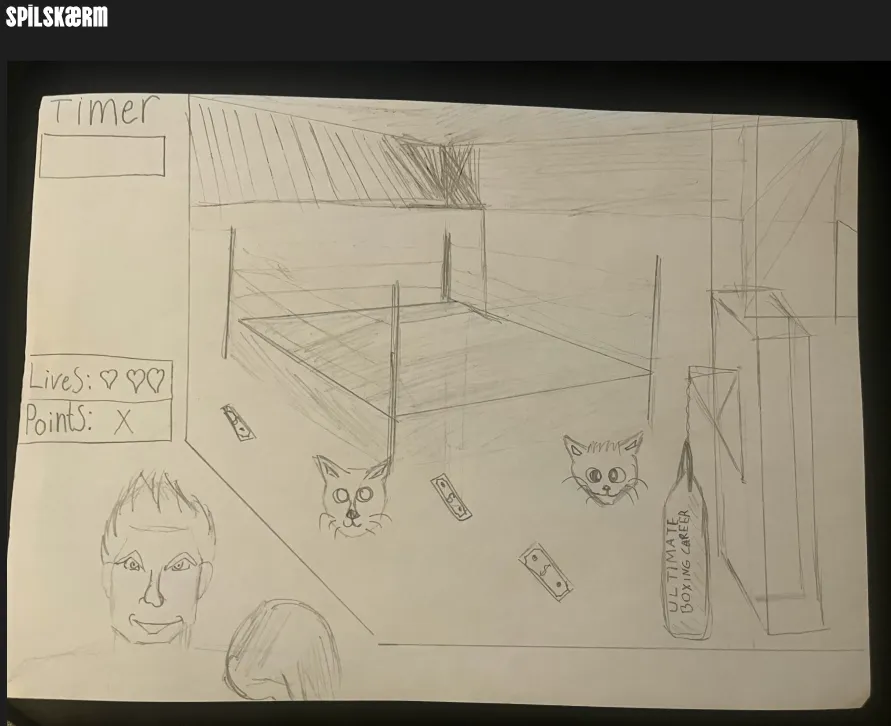 SPILSKÆRM
Timer
Lives:
Points: X
ULTIMATE
BOXING CAREER